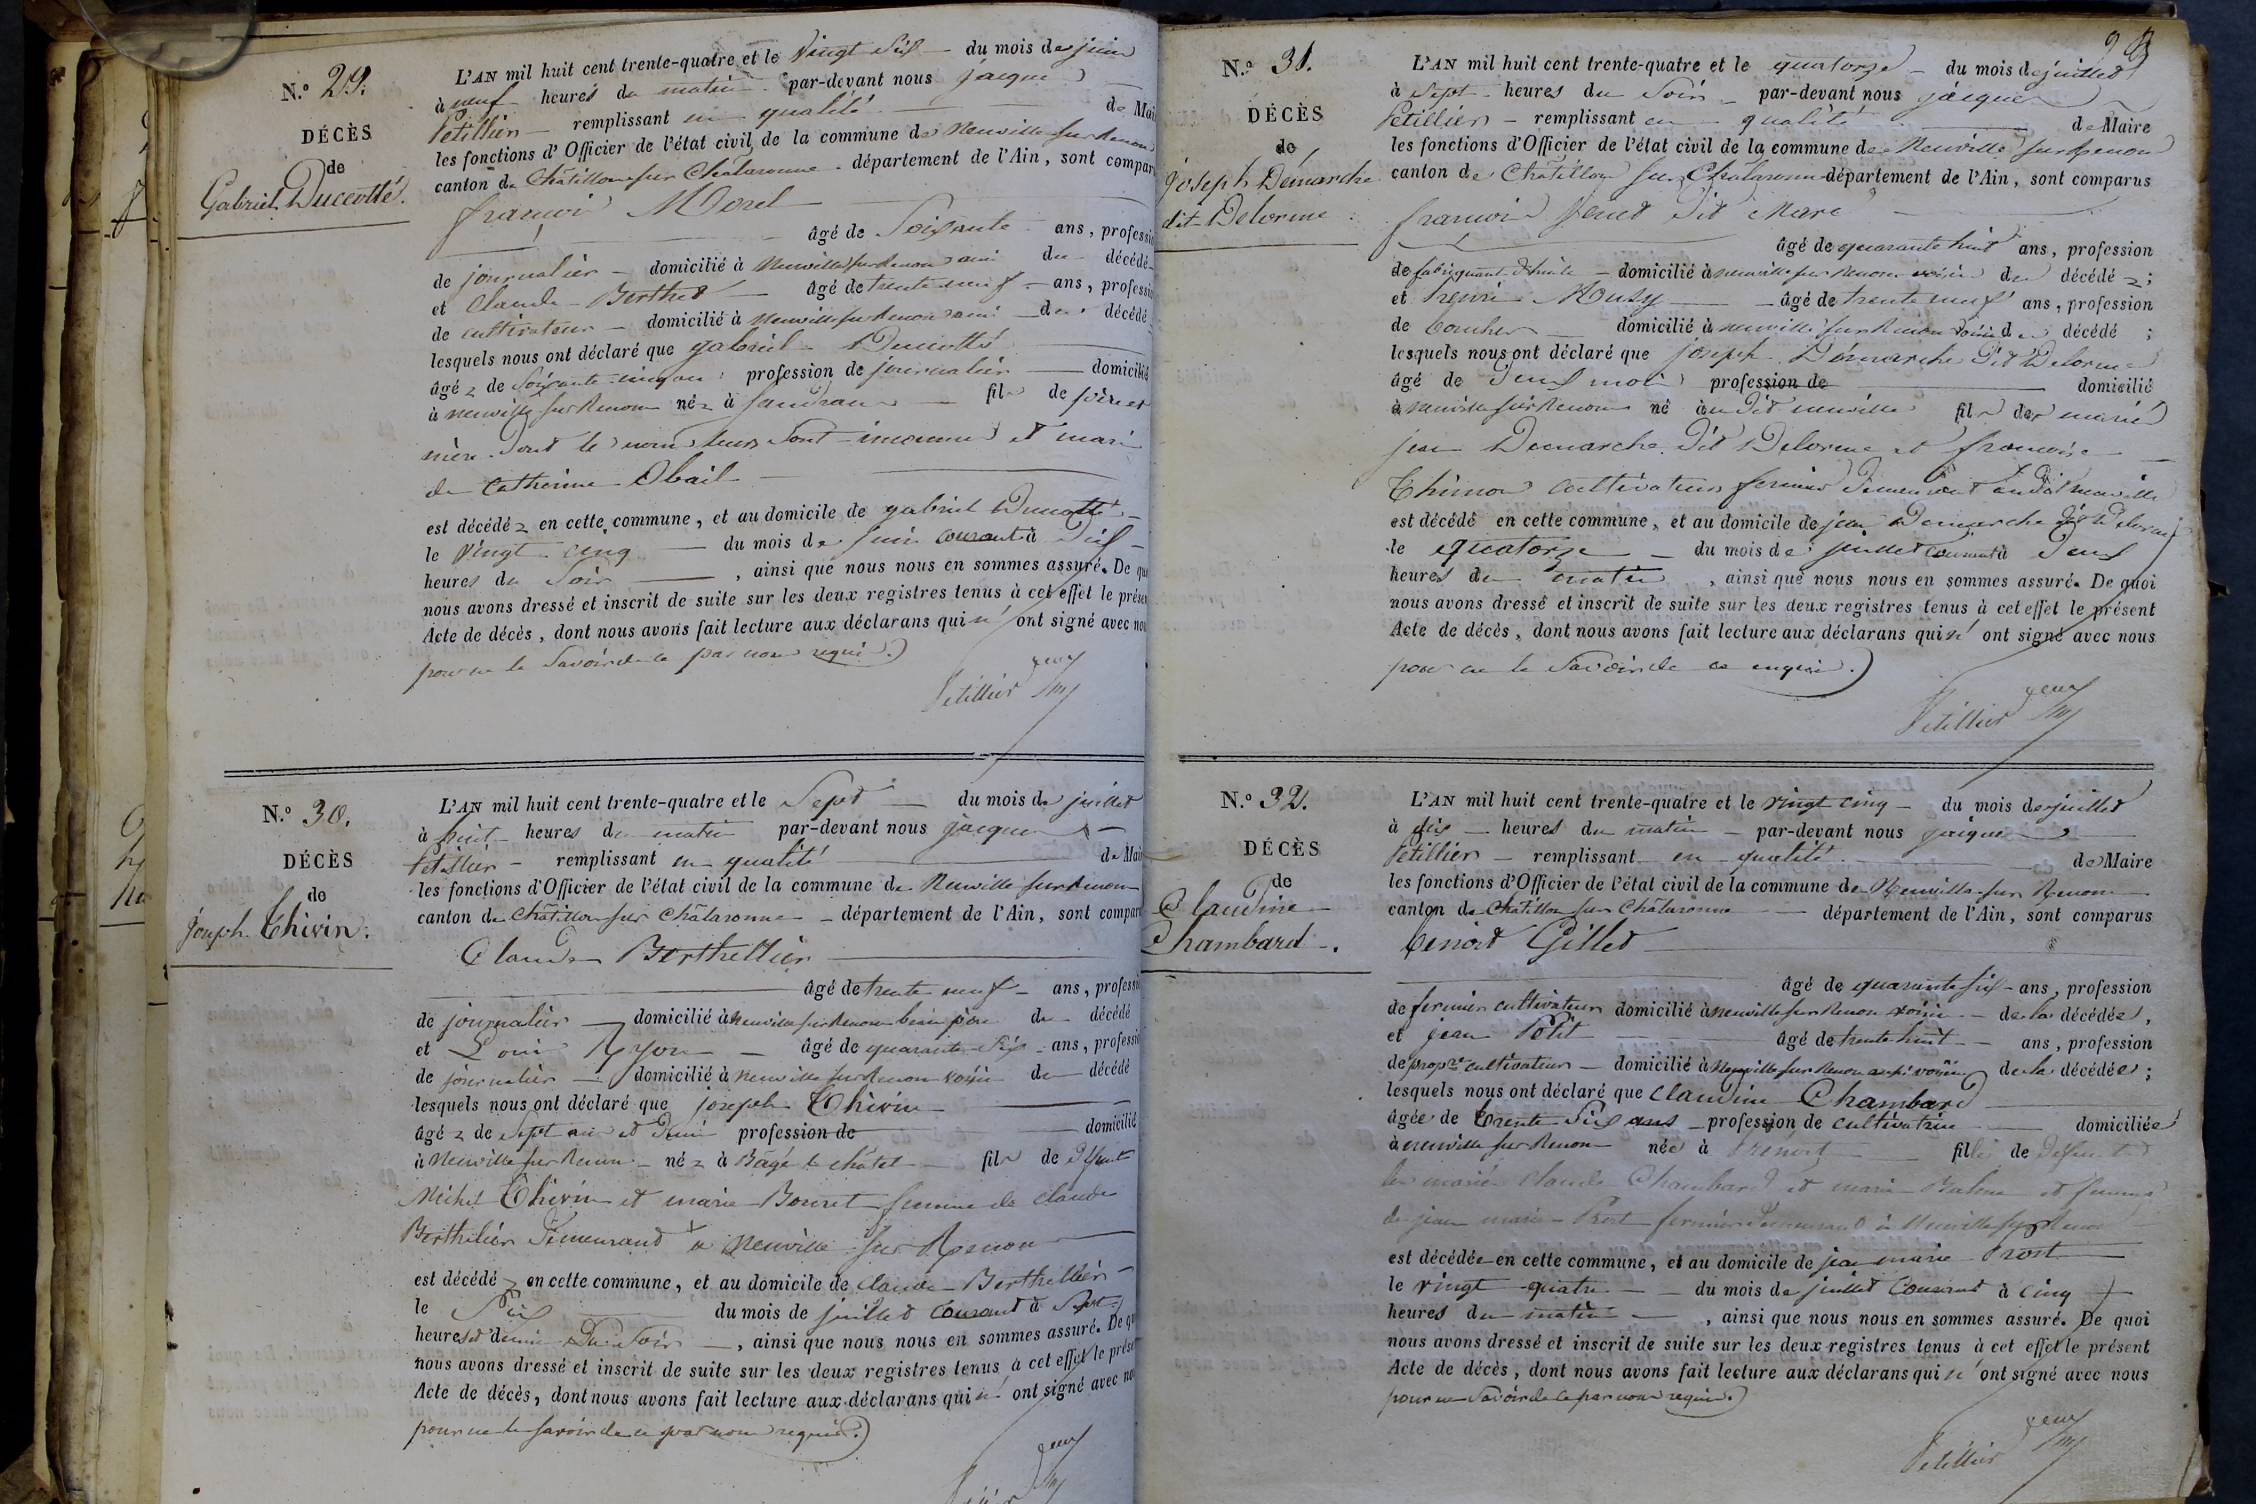 N.° 29.
DÉCÈS
de
Gabriel Ducotté.
L'AN mil huit cent trente-quatre et le vingt six du mois de juin
à neuf heures du matin par-devant nous jacque
Petillier remplissant en qualité de Mai
les fonctions d'Officier de l'état civil de la commune de Neuville sur Renom
canton de Châtillon sur Chalaronne département de l'Ain, sont compar
françois Morel
âgé de Soixante ans, professio
de journalier domicilié à Neuville sur Renom ami du décédé
et Claude Berthet âgé de trente neuf ans, professio
de cultivateur domicilié à Neuville sur Renom ami du décédé
lesquels nous ont déclaré que gabriel Ducotté
âgé de Soixante cinq ans profession de journalier domicilié
à Neuville sur Renom né à Sandrans fils de père et
mère dont le nom leurs sont inconnus et mari
de Catherine Obail
est décédé en cette commune, et au domicile de gabriel Ducotté
le vingt cinq du mois de juin courant à dix
heures du Soir, ainsi que nous nous en sommes assuré. De qu
nous avons dressé et inscrit de suite sur les deux registres tenus à cet effet le présen
Acte de décès, dont nous avons fait lecture aux déclarans qui n' ont signé avec nou
pour ne le Savoir de ce par nous requis.
Petillier
N.° 30.
DÉCÈS
de
joseph Thivin.
L'AN mil huit cent trente-quatre et le Sept du mois de juillet
à huit heures du matin par-devant nous jacque
Petillier remplissant en qualité de Mai
les fonctions d'Officier de l'état civil de la commune de Neuville sur Renom
canton de Châtillon sur Châlaronne département de l'Ain, sont compar
Claude Berthellier
âgé de trente neuf ans, professi
de journalier domicilié à Neuville sur Renom beau père du décédé
et Louis âgé de quarante six ans, professi
de journalier domicilié à Neuville sur Renom voisin du décédé
lesquels nous ont déclaré que joseph Thivin
âgé de sept ans et demi profession de domicilié
à Neuville sur Renom né à Bâgé le châtel fils de defunt
Michel Thivin et marie Bouret femme de claude
Berthelier demeurand à Neuville sur Renom
est décédé en cette commune, et au domicile de claude Berthellier
le Six du mois de juillet courant à Sept
heures et demie Du Soir, ainsi que nous nous en sommes assuré. De qu
nous avons dressé et inscrit de suite sur les deux registres tenus à cet effet le présen
Acte de décès, dont nous avons fait lecture aux déclarans qui n' ont signé avec nou
pour ne le savoir de ce par nous requis.
N.° 31.
DÉCÈS
de
joseph Démarche
dit Delorme
L'AN mil huit cent trente-quatre et le quatorze du mois de juillet
à Sept heures du Soir par-devant nous jacque
Petillier remplissant en qualité de Maire
les fonctions d'Officier de l'état civil de la commune de Neuville sur Renom
canton de Châtillon sur Chalaronne département de l'Ain, sont comparus
francois dit Mare
âgé de quarante huit ans, profession
de fabriquant d'huile domicilié à Neuville sur Renom voisin du décédé ;
et henri Mousy âgé de trente neuf ans, profession
de boucher domicilié à neuville sur Renom voisin du décédé ;
lesquels nous ont déclaré que joseph Démarche dit Delorme
âgé de deux mois profession de domicilié
à Neuville sur Renom né audit neuville fils des mariés
jean Demarche dit Delorme et francoise
Thimon cultivateurs fermier demeurant audit neuville
est décédé en cette commune, et au domicile de jean Demarche dit Delorme
le quatorze du mois de juillet courant à deux
heures du matin, ainsi que nous nous en sommes assuré. De quoi
nous avons dressé et inscrit de suite sur les deux registres tenus à cet effet le présent
Acte de décès, dont nous avons fait lecture aux déclarans qui n' ont signé avec nous
pour ne le Savoir de ce enquis.
Petillier
N.° 32.
DÉCÈS
de
Claudine
Chambard.
L'AN mil huit cent trente-quatre et le vingt cinq du mois de juillet
à dix heures du matin par-devant nous jacque
Petillier remplissant en qualité de Maire
les fonctions d'Officier de l'état civil de la commune de Neuville sur Renom
canton de Châtillon sur Châlaronne département de l'Ain, sont comparus
benoit Gillet
âgé de quarante six ans, profession
de fermier cultivateur domicilié à neuville sur Renom voisin de la décédée,
et jean Petit âgé de trente huit ans, profession
de propre cultivateur domicilié à Neuville sur Renom aussi voisin de la décédée ;
lesquels nous ont déclaré que Claudine Chambard
âgée de trente Six ans profession de cultivatrice domiciliée
à neuville sur Renom née à fille de defunt
les mariés Claude Chambard et marie et femme
de jean marie Prost fermier demeurand à Neuville sur Renom
est décédée en cette commune, et au domicile de jean marie Prost
le vingt quatre du mois de juillet Courant à cinq
heures du matin, ainsi que nous nous en sommes assuré. De quoi
nous avons dressé et inscrit de suite sur les deux registres tenus à cet effet le présent
Acte de décès, dont nous avons fait lecture aux déclarans qui n' ont signé avec nous
pour ne Savoir de ce par nous requis.
Petillier